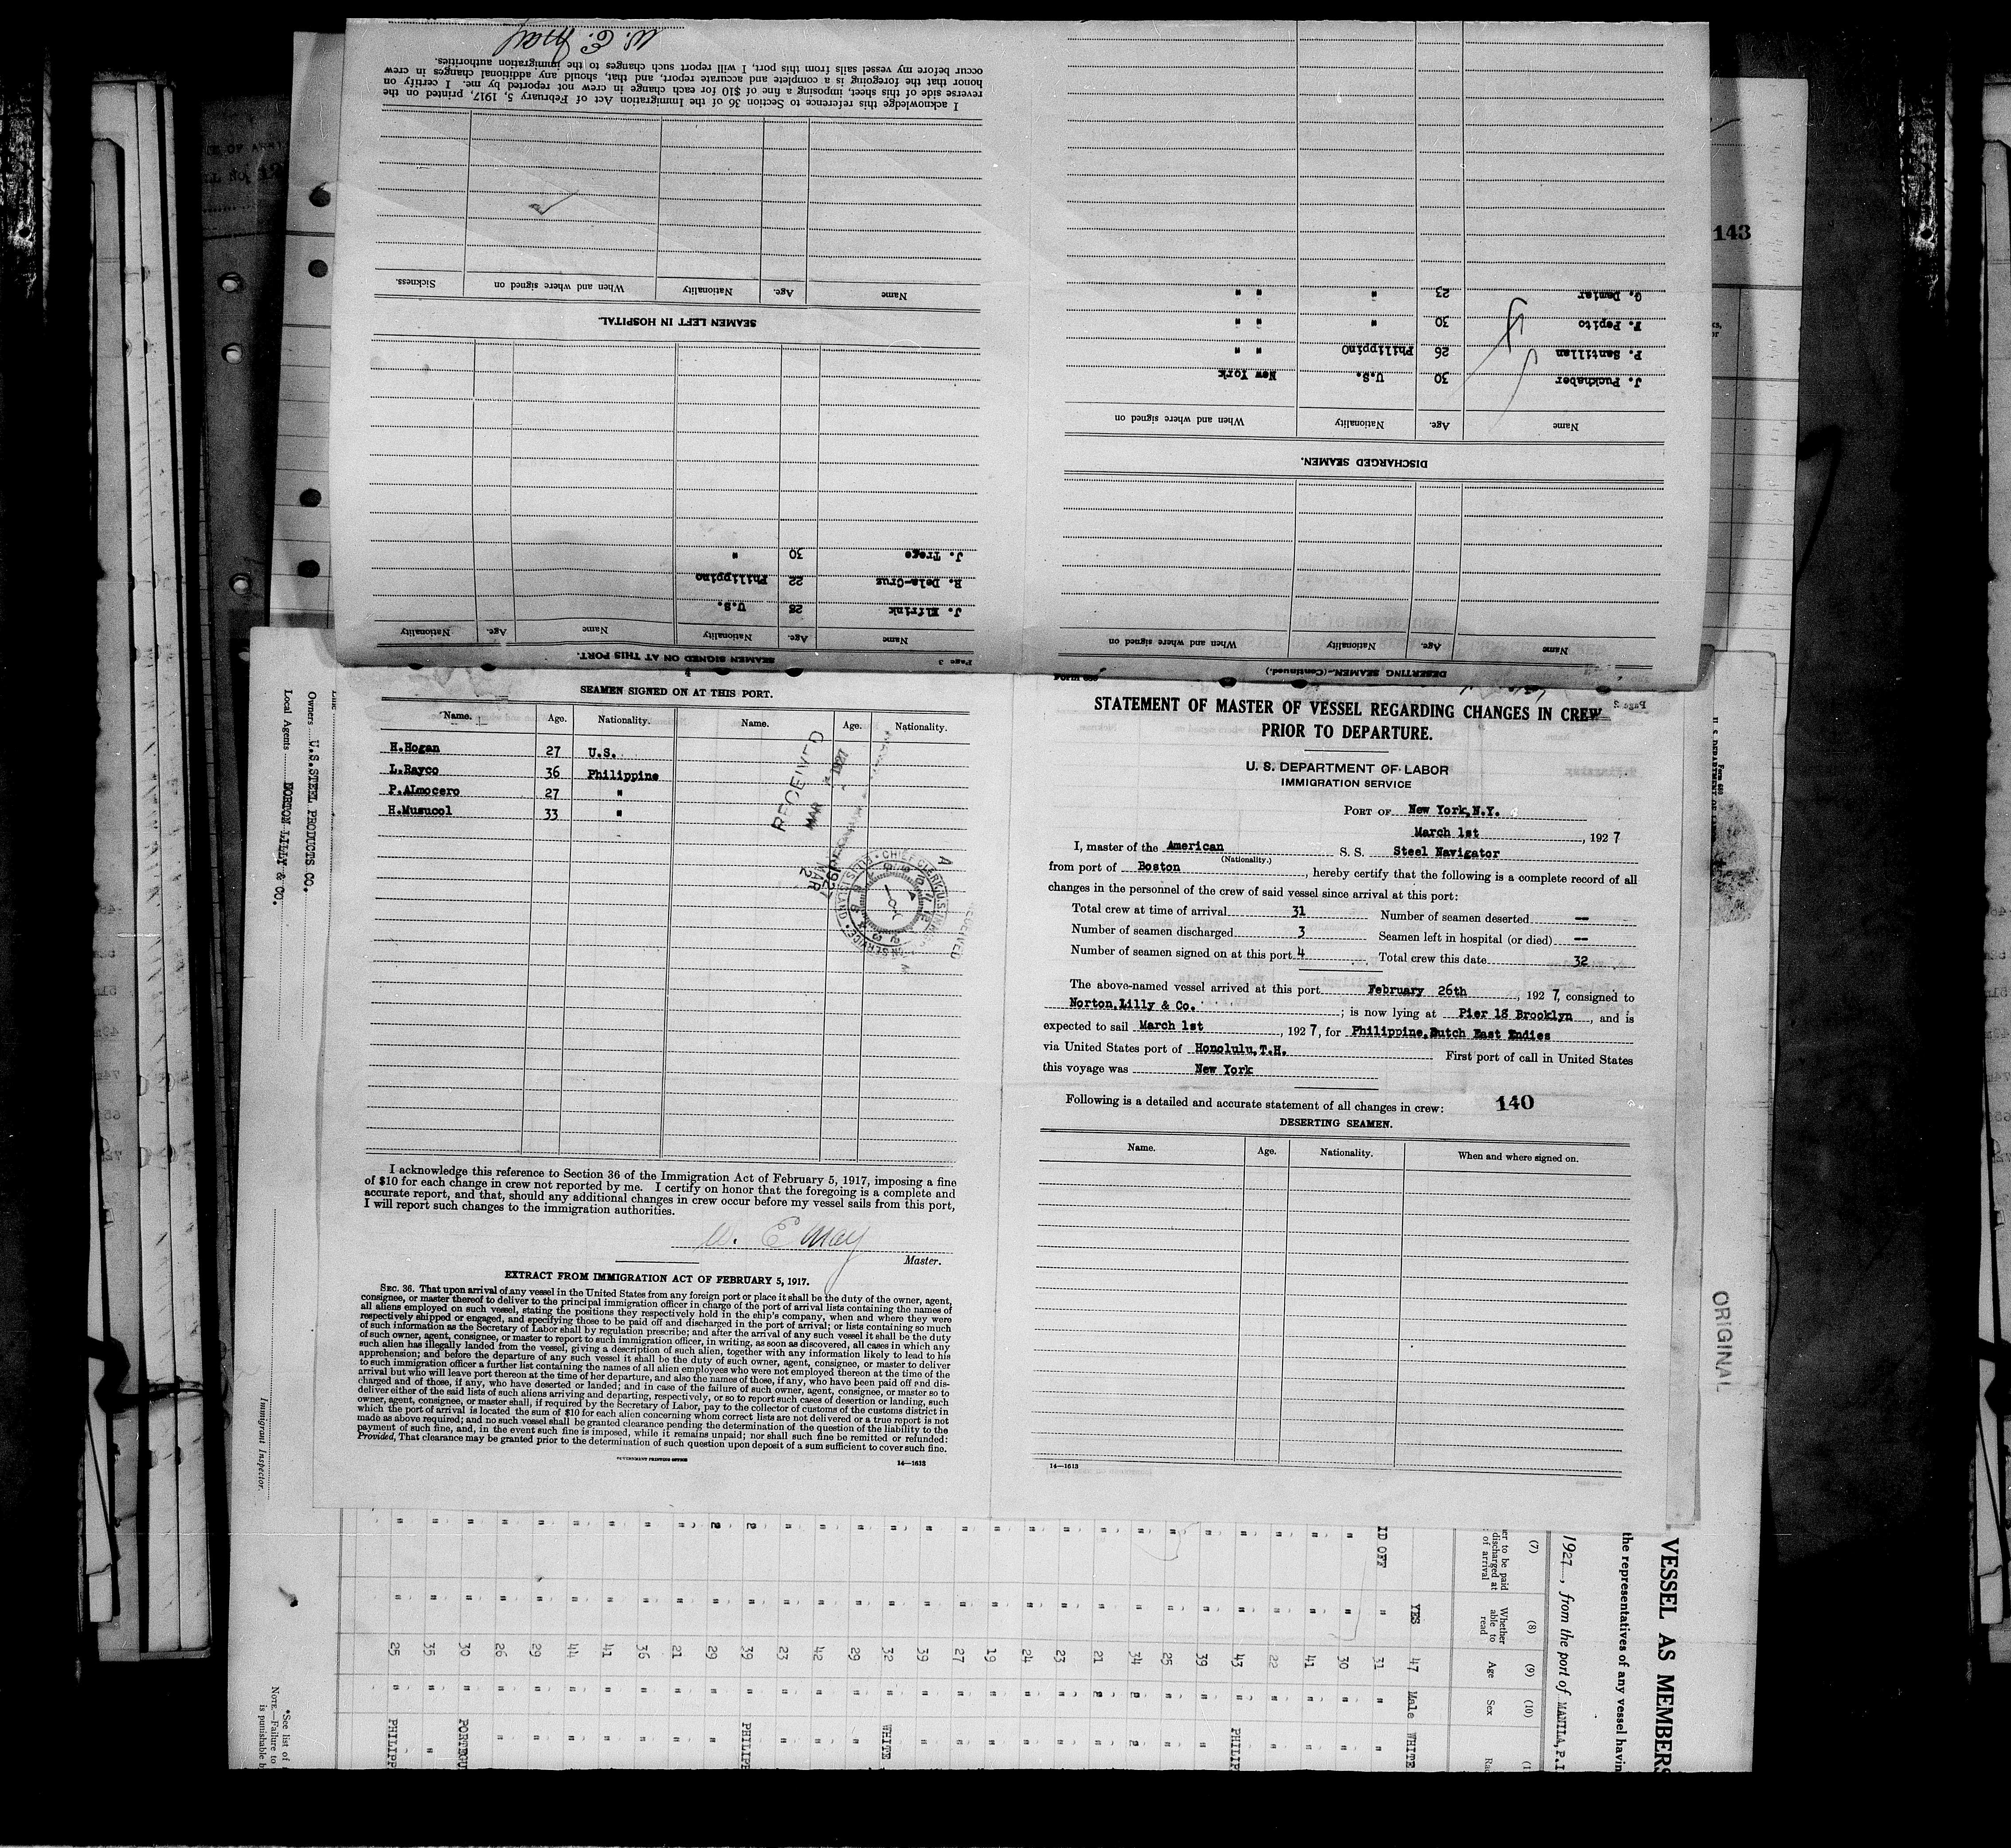 SEAMEN SIGNED ON AT THIS PORT.
Name. Age. Nationality. Name. Age. Nationality.
H.Hogan 27 U.S.
L.Rayco 36 Philippine
P.Almocero 27 "
H.Musucol 33 "
RECEIVED
MAR 1927
I acknowledge this reference to Section 36 of the Immigration Act of February 5, 1917, imposing a fine
of $10 for each change in crew not reported by me. I certify on honor that the foregoing is a complete and
accurate report, and that, should any additional changes in crew occur before my vessel sails from this port,
I will report such changes to the immigration authorities.
W. E. May
Master.
EXTRACT FROM IMMIGRATION ACT OF FEBRUARY 5, 1917.
SEC. 36. That upon arrival of any vessel in the United States from any foreign port or place it shall be the duty of the owner, agent,
consignee, or master thereof to deliver to the principal immigration officer in charge of the port of arrival lists containing the names of
all aliens employed on such vessel, stating the positions they respectively hold in the ship's company, when and where they were
respectively shipped or engaged, and specifying those to be paid off and discharged in the port of arrival; or lists containing so much
of such information as the Secretary of Labor shall by regulation prescribe; and after the arrival of any such vessel it shall be the duty
of such owner, agent, consignee, or master to report to such immigration officer, in writing, as soon as discovered, all cases in which any
such alien has illegally landed from the vessel, giving a description of such alien, together with any information likely to lead to his
apprehension; and before the departure of any such vessel it shall be the duty of such owner, agent, consignee, or master to deliver
to such immigration officer a further list containing the names of all alien employees who were not employed thereon at the time of the
arrival but who will leave port thereon at the time of her departure, and also the names of those, if any, who have been paid off and dis-
charged and of those, if any, who have deserted or landed; and in case of the failure of such owner, agent, consignee, or master so to
deliver either of the said lists of such aliens arriving and departing, respectively, or so to report such cases of desertion or landing, such
owner, agent, consignee, or master shall, if required by the Secretary of Labor, pay to the collector of customs of the customs district in
which the port of arrival is located the sum of $10 for each alien concerning whom correct lists are not delivered or a true report is not
made as above required; and no such vessel shall be granted clearance pending the determination of the question of the liability to the
payment of such fine, and, in the event such fine is imposed, while it remains unpaid; nor shall such fine be remitted or refunded:
Provided, That clearance may be granted prior to the determination of such question upon deposit of a sum sufficient to cover such fine.
GOVERNMENT PRINTING OFFICE 14—1613
STATEMENT OF MASTER OF VESSEL REGARDING CHANGES IN CREW
PRIOR TO DEPARTURE.
U. S. DEPARTMENT OF LABOR
IMMIGRATION SERVICE
PORT OF New York,N.Y.
March 1st, 1927
I, master of the American S. S. Steel Navigator
(Nationality.)
from port of Boston, hereby certify that the following is a complete record of all
changes in the personnel of the crew of said vessel since arrival at this port:
Total crew at time of arrival 31 Number of seamen deserted --
Number of seamen discharged 3 Seamen left in hospital (or died) --
Number of seamen signed on at this port 4 Total crew this date 32
The above-named vessel arrived at this port February 26th, 1927, consigned to
Norton,Lilly & Co. ; is now lying at Pier 18 Brooklyn, and is
expected to sail March 1st, 1927, for Philippine,Dutch East Indies
via United States port of Honolulu,T.H. First port of call in United States
this voyage was New York
Following is a detailed and accurate statement of all changes in crew: 140
DESERTING SEAMEN.
Name. Age. Nationality. When and where signed on.
14—1613
Page 3
SEAMEN SIGNED ON AT THIS PORT.
Name Age. Nationality Name Age. Nationality
J. Elfrink 28 U.S.
R. Dela-Crus 22 Philippino
J. Trego 30 "
SEAMEN LEFT IN HOSPITAL.
Name Age. Nationality When and where signed on Sickness.
I acknowledge this reference to Section 36 of the Immigration Act of February 5, 1917, printed on the
reverse side of this sheet, imposing a fine of $10 for each change in crew not reported by me. I certify on
honor that the foregoing is a complete and accurate report, and that, should any additional changes in crew
occur before my vessel sails from this port, I will report such changes to the immigration authorities.
W. E. May
DESERTING SEAMEN—(Continued.)
Name Age. Nationality When and where signed on
DISCHARGED SEAMEN.
Name Age. Nationality When and where signed on
J. Puckhaber 30 U.S. New York
P. Santillan 26 Philippino " "
F. Pepito 30 " " "
G. Damier 23 " " "
143
ORIGINAL
Owners U.S.STEEL PRODUCTS CO.
Local Agents NORTON LILLY & CO.
Immigrant Inspector.
*See list of
NOTE.—Failure to
is punishable b
VESSEL AS MEMBERS
the representatives of any vessel havin
1927, from the port of MANILA,P.I
(7) (8) (9) (10)
Whether able to read Age Sex
ID OFF YES 47 Male WHITE
31
30
41
22
43 PHILIP
39
25
34
21
23
24
19
27
39
32 WHITE
29
42
23
39 PHILIPP
29
21
36
41
44
29
26
30 PORTEGU
35
25 PHILIPP